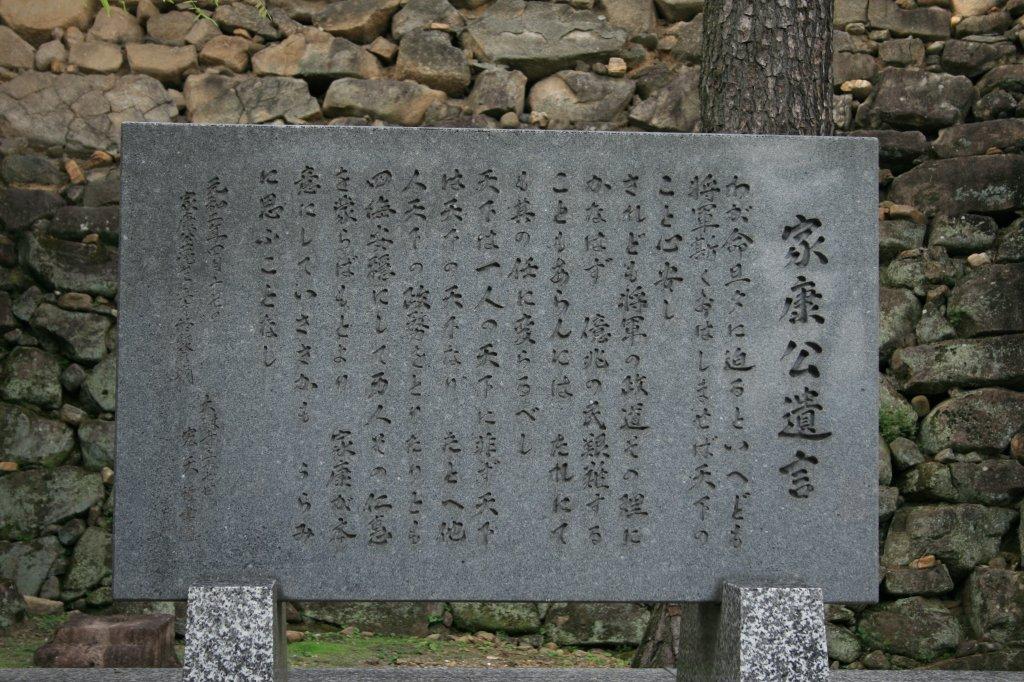 家康公遺言
わが命旦夕に迫るといへども
将軍斯く在はしませば天下の
こと心安し
されども将軍の政道その理に
かなはず 億兆の民艱難する
こともあらんには たれにて
も其の任に変らるべし
天下は一人の天下に非ず天下
は天下の天下なり たとへ他
人天下の政務をとりたりとも
四海安穏にして万人その仁恵
を蒙らばもとより 家康が本
意にしていささかも うらみ
に思ふことなし
元和二年四月十七日